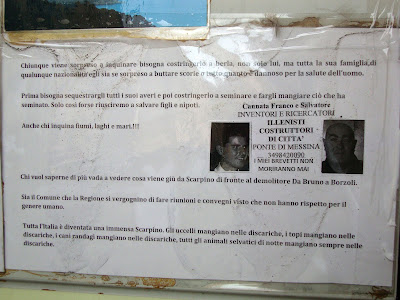 Chiunque viene sorpreso a inquinare bisogna costringerlo a berla, non solo lui, ma tutta la sua famiglia,di
qualunque nazionalità egli sia se sorpreso a buttare scorie o tutto quanto è dannoso per la salute dell'uomo.
Prima bisogna sequestrargli tutti i suoi averi e poi costringerlo a seminare e fargli mangiare ciò che ha
seminato. Solo così forse riusciremo a salvare figli e nipoti.
Anche chi inquina fiumi, laghi e mari.!!!
Caenata Franco e Salvatore
INVENTORI E RICERCATORI
ILLENISTI
COSTRUTTORI
DI CITTA'
PONTE DI MESSINA
3498420090
I MIEI BREVETTI NON
MORIRANNO MAI
Chi vuol saperne di più vada a vedere cosa viene giù da Scarpino di fronte al demolitore Da Bruno a Borzoli.
Sia il Comune che la Regione si vergognino di fare riunioni e convegni visto che non hanno rispetto per il
genere umano.
Tutta l'Italia è diventata una immensa Scarpino. Gli uccelli mangiano nelle discariche, i topi mangiano nelle
discariche, i cani randagi mangiano nelle discariche, tutti gli animali selvatici di notte mangiano sempre nelle
discariche.